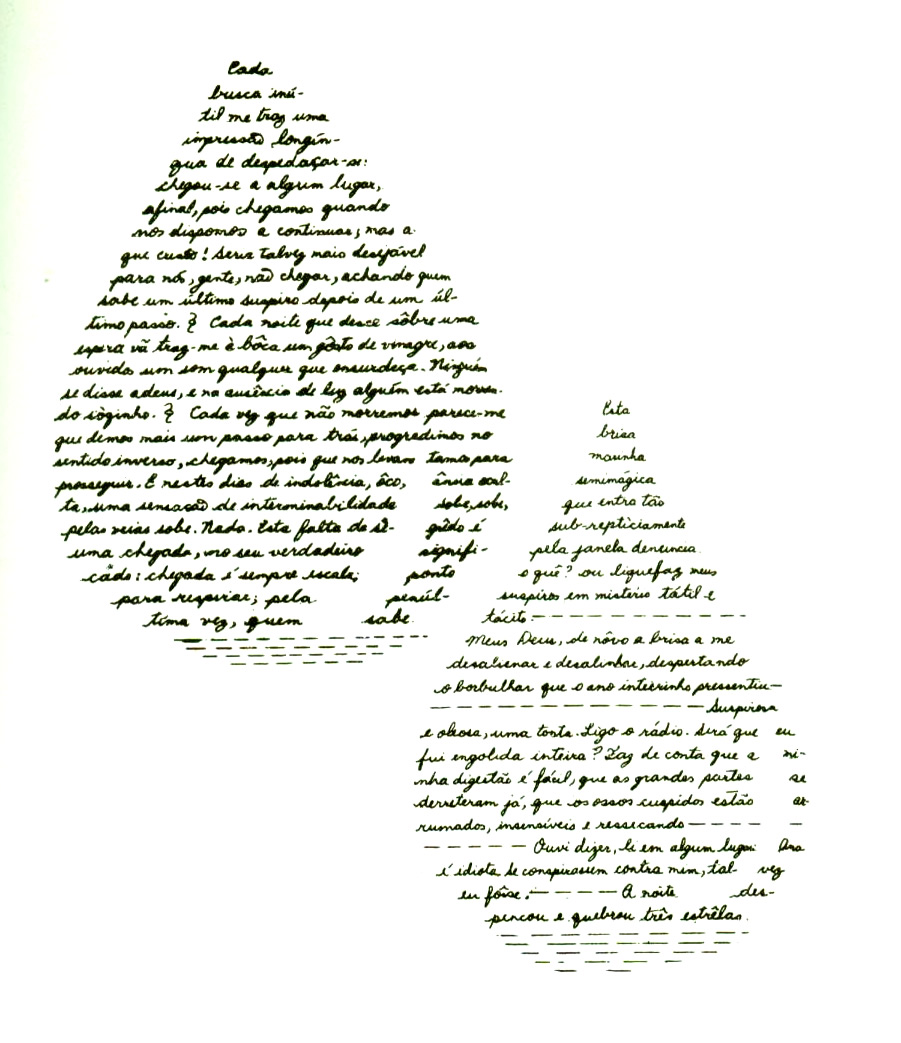 Cada
busca inú-
til me traz uma
impressão longín-
qua de despedaçar-se:
chegou-se a algum lugar,
afinal, pois chegamos quando
nos dispomos a continuar; mas a
que custo! Seria talvez mais desejável
para nós, gente, não chegar, achando quem
sabe um último suspiro depois de um úl-
timo passo. § Cada noite que desce sôbre uma
espera vã traz-me à bôca um gôsto de vinagre, aos
ouvidos um som qualquer que ensurdeça. Ninguém
se disse adeus, e na ausência de luz alguém está morren-
do sòzinho. § Cada vez que não morremos parece-me
que demos mais um passo para trás, progredimos no
sentido inverso, chegamos, pois que nos levan tamos para
prosseguir. E nestes dias de indolência, ôco, ânsia sol-
ta, uma sensação de interminabilidade sobe, sobe,
pelas veias sobe. Nada. Esta falta de sê- gûdo é
uma chegada, no seu verdadeiro signifi-
cado: chegada é sempre escala; ponto
para respirar; pela penúl-
tima vez, quem sabe.
Esta
brisa
mansinha
semimágica
que entra tão
sub-repticiamente
pela janela denuncia
o quê? ou liquefaz meus
suspiros em mistério tátil e
tácito.
Meus Deus, de nôvo a brisa a me
desalienar e desalinhar, despertando
o borbulhar que o ano inteirinho pressentiu
Suspirosa
e oleosa, uma tonta. Ligo o rádio. Será que eu
fui engolida inteira? Faz de conta que a mi-
nha digestão é fácil, que as grandes partes se
derreteram já, que os ossos cuspidos estão ar-
rumados, insensíveis e ressecando
Ouvi dizer, li em algum lugar: Ana
é idiota. Se conspirassem contra mim, tal- vez
eu fôsse. A noite des-
pencou e quebrou três estrêlas.